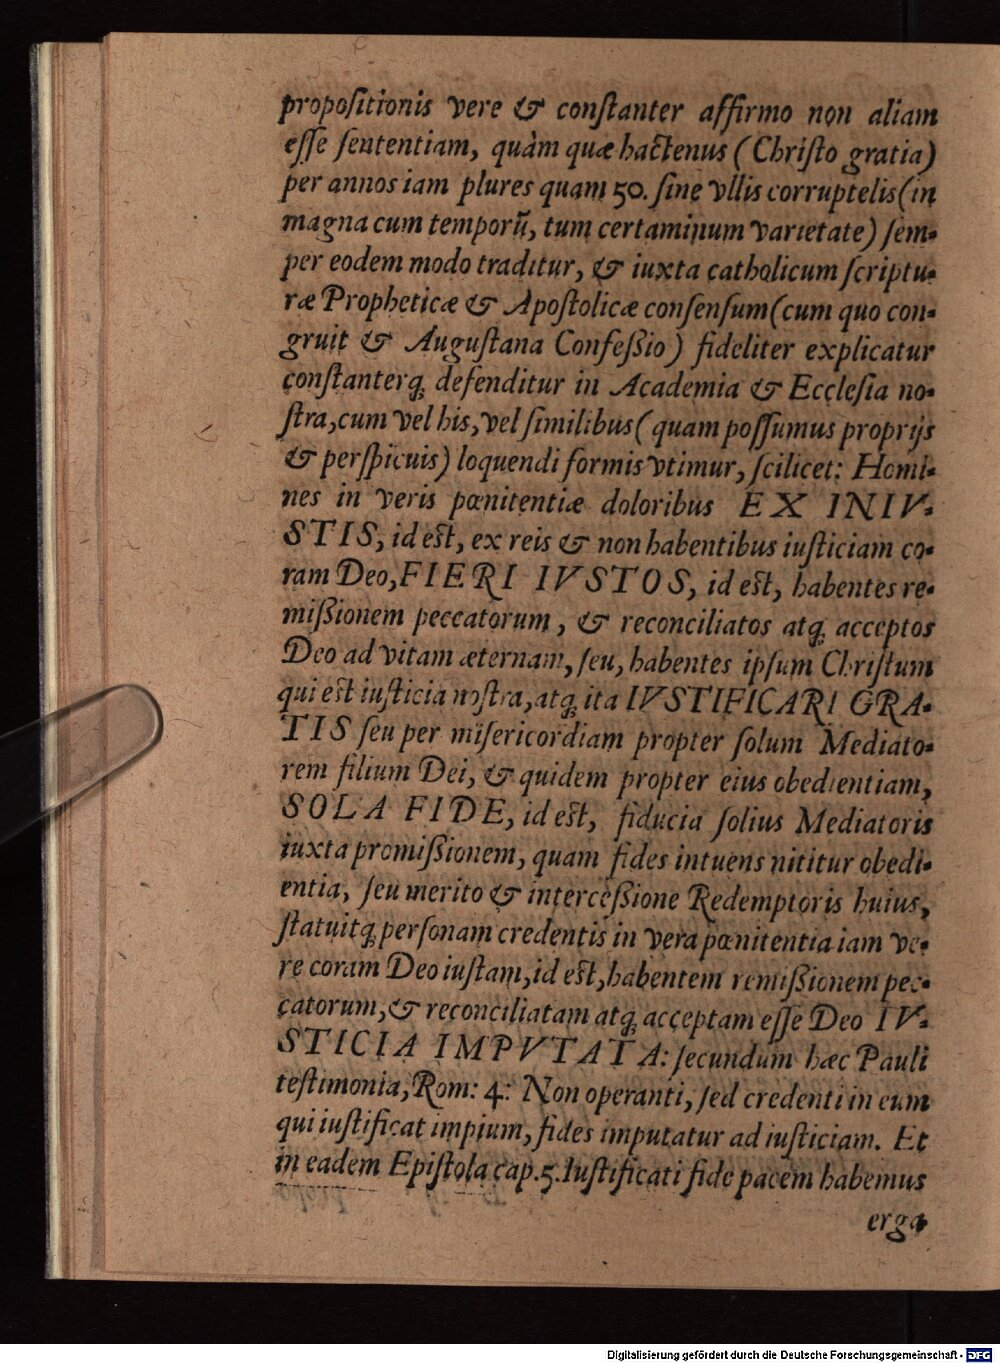 propoſitionis vere & conſtanter affirmo non aliam
eſſe ſententiam, quàm quæ hactenus (Chriſto gratia)
per annos iam plures quam 50. ſine vllis corruptelis (in
magna cum temporū, tum certaminum varietate) ſem-
per eodem modo traditur, & iuxta catholicum ſcriptu-
ræ Propheticæ & Apoſtolicæ conſenſum (cum quo con-
gruit & Auguſtana Confeßio) fideliter explicatur
conſtanterq; defenditur in Academia & Eccleſia no-
ſtra, cum vel his, vel ſimilibus (quam poſſumus proprijs
& perſpicuis) loquendi formis vtimur, ſcilicet: Homi-
nes in veris pœnitentiæ doloribus EX INIV-
STIS, id eſt, ex reis & non habentibus iuſticiam co-
ram Deo, FIERI IVSTOS, id eſt, habentes re-
mißionem peccatorum, & reconciliatos atq; acceptos
Deo ad vitam æternam, ſeu, habentes ipſum Chriſtum
qui eſt iuſticia noſtra, atq; ita IVSTIFICARI GRA-
TIS ſeu per miſericordiam propter ſolum Mediato-
rem filium Dei, & quidem propter eius obedientiam,
SOLA FIDE, id eſt, fiducia ſolius Mediatoris
iuxta promißionem, quam fides intuens nititur obedi-
entia, ſeu merito & interceßione Redemptoris huius,
ſtatuitq; perſonam credentis in vera pœnitentia iam ve-
re coram Deo iuſtam, id eſt, habentem remißionem pec-
catorum, & reconciliatam atq; acceptam eſſe Deo IV-
STICIA IMPVTATA: ſecundum hæc Pauli
teſtimonia, Rom: 4: Non operanti, ſed credenti in eum
qui iuſtificat impium, fides imputatur ad iuſticiam. Et
in eadem Epiſtola cap. 5. Iuſtificati fide pacem habemus
erga
Digitalisierung gefördert durch die Deutsche Forschungsgemeinschaft - DFG